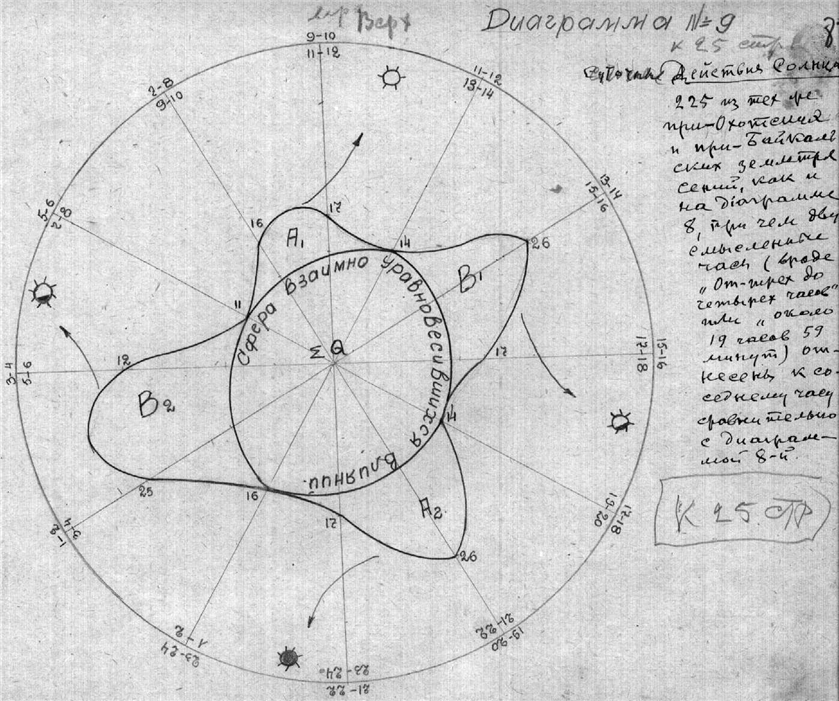 Верх
Диаграмма №9
к 25 стр.
Действия Солнца
225 из тех же
при-Охотских
и при-Байкаль
ских землетря
сений, как и
на диаграмме
8, при чем дву
смысленный
час (вроде
„От-трех до
четырех часов"
или „около
19 часов 59
минут) от-
несены к со-
седнему часу
сравнительно
с диаграм-
мой 8-й.
К 25 СТР
9-10
11-12
11-12
13-14
13-14
15-16
15-16
17-18
17-18
19-20
19-20
21-22
21-22
23-24
23-24
1-2
1-2
3-4
3-4
5-6
5-6
7-8
9-10
16
17
14
26
17
14
26
17
16
25
12
11
A1
B1
A2
B2
Σ Q
Сфера взаимно уравновесившихся влияний.